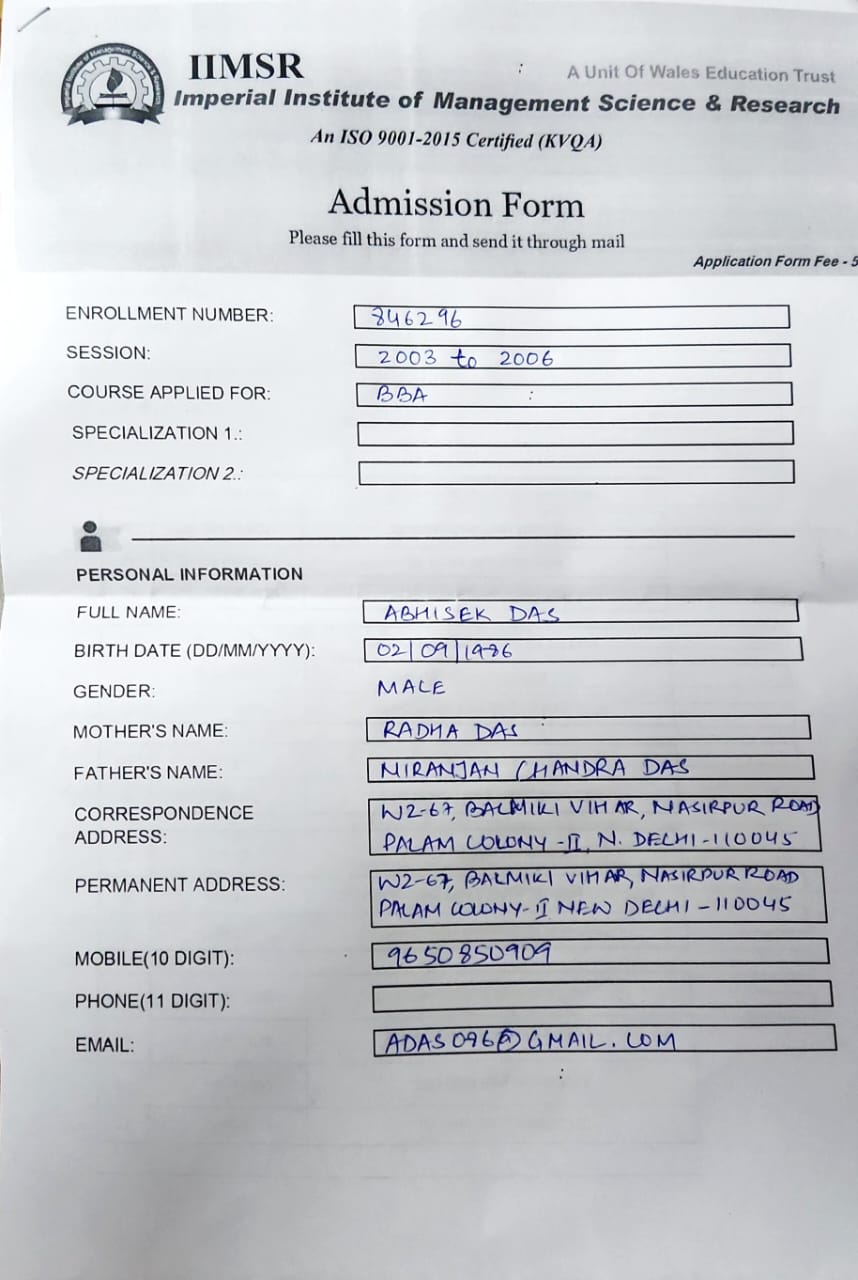 IIMSR
A Unit Of Wales Education Trust
Imperial Institute of Management Science & Research
An ISO 9001-2015 Certified (KVQA)
Admission Form
Please fill this form and send it through mail
Application Form Fee - 5
ENROLLMENT NUMBER: 846296
SESSION: 2003 to 2006
COURSE APPLIED FOR: BBA
SPECIALIZATION 1.:
SPECIALIZATION 2.:
PERSONAL INFORMATION
FULL NAME: ABHISEK DAS
BIRTH DATE (DD/MM/YYYY): 02/09/1986
GENDER: MALE
MOTHER'S NAME: RADHA DAS
FATHER'S NAME: NIRANJAN CHANDRA DAS
CORRESPONDENCE ADDRESS: WZ-67, BALMIKI VIHAR, NASIRPUR ROAD
PALAM COLONY -II, N. DELHI-110045
PERMANENT ADDRESS: WZ-67, BALMIKI VIHAR, NASIRPUR ROAD
PALAM COLONY-II NEW DELHI -110045
MOBILE(10 DIGIT): 9650850909
PHONE(11 DIGIT):
EMAIL: ADAS096@GMAIL.COM